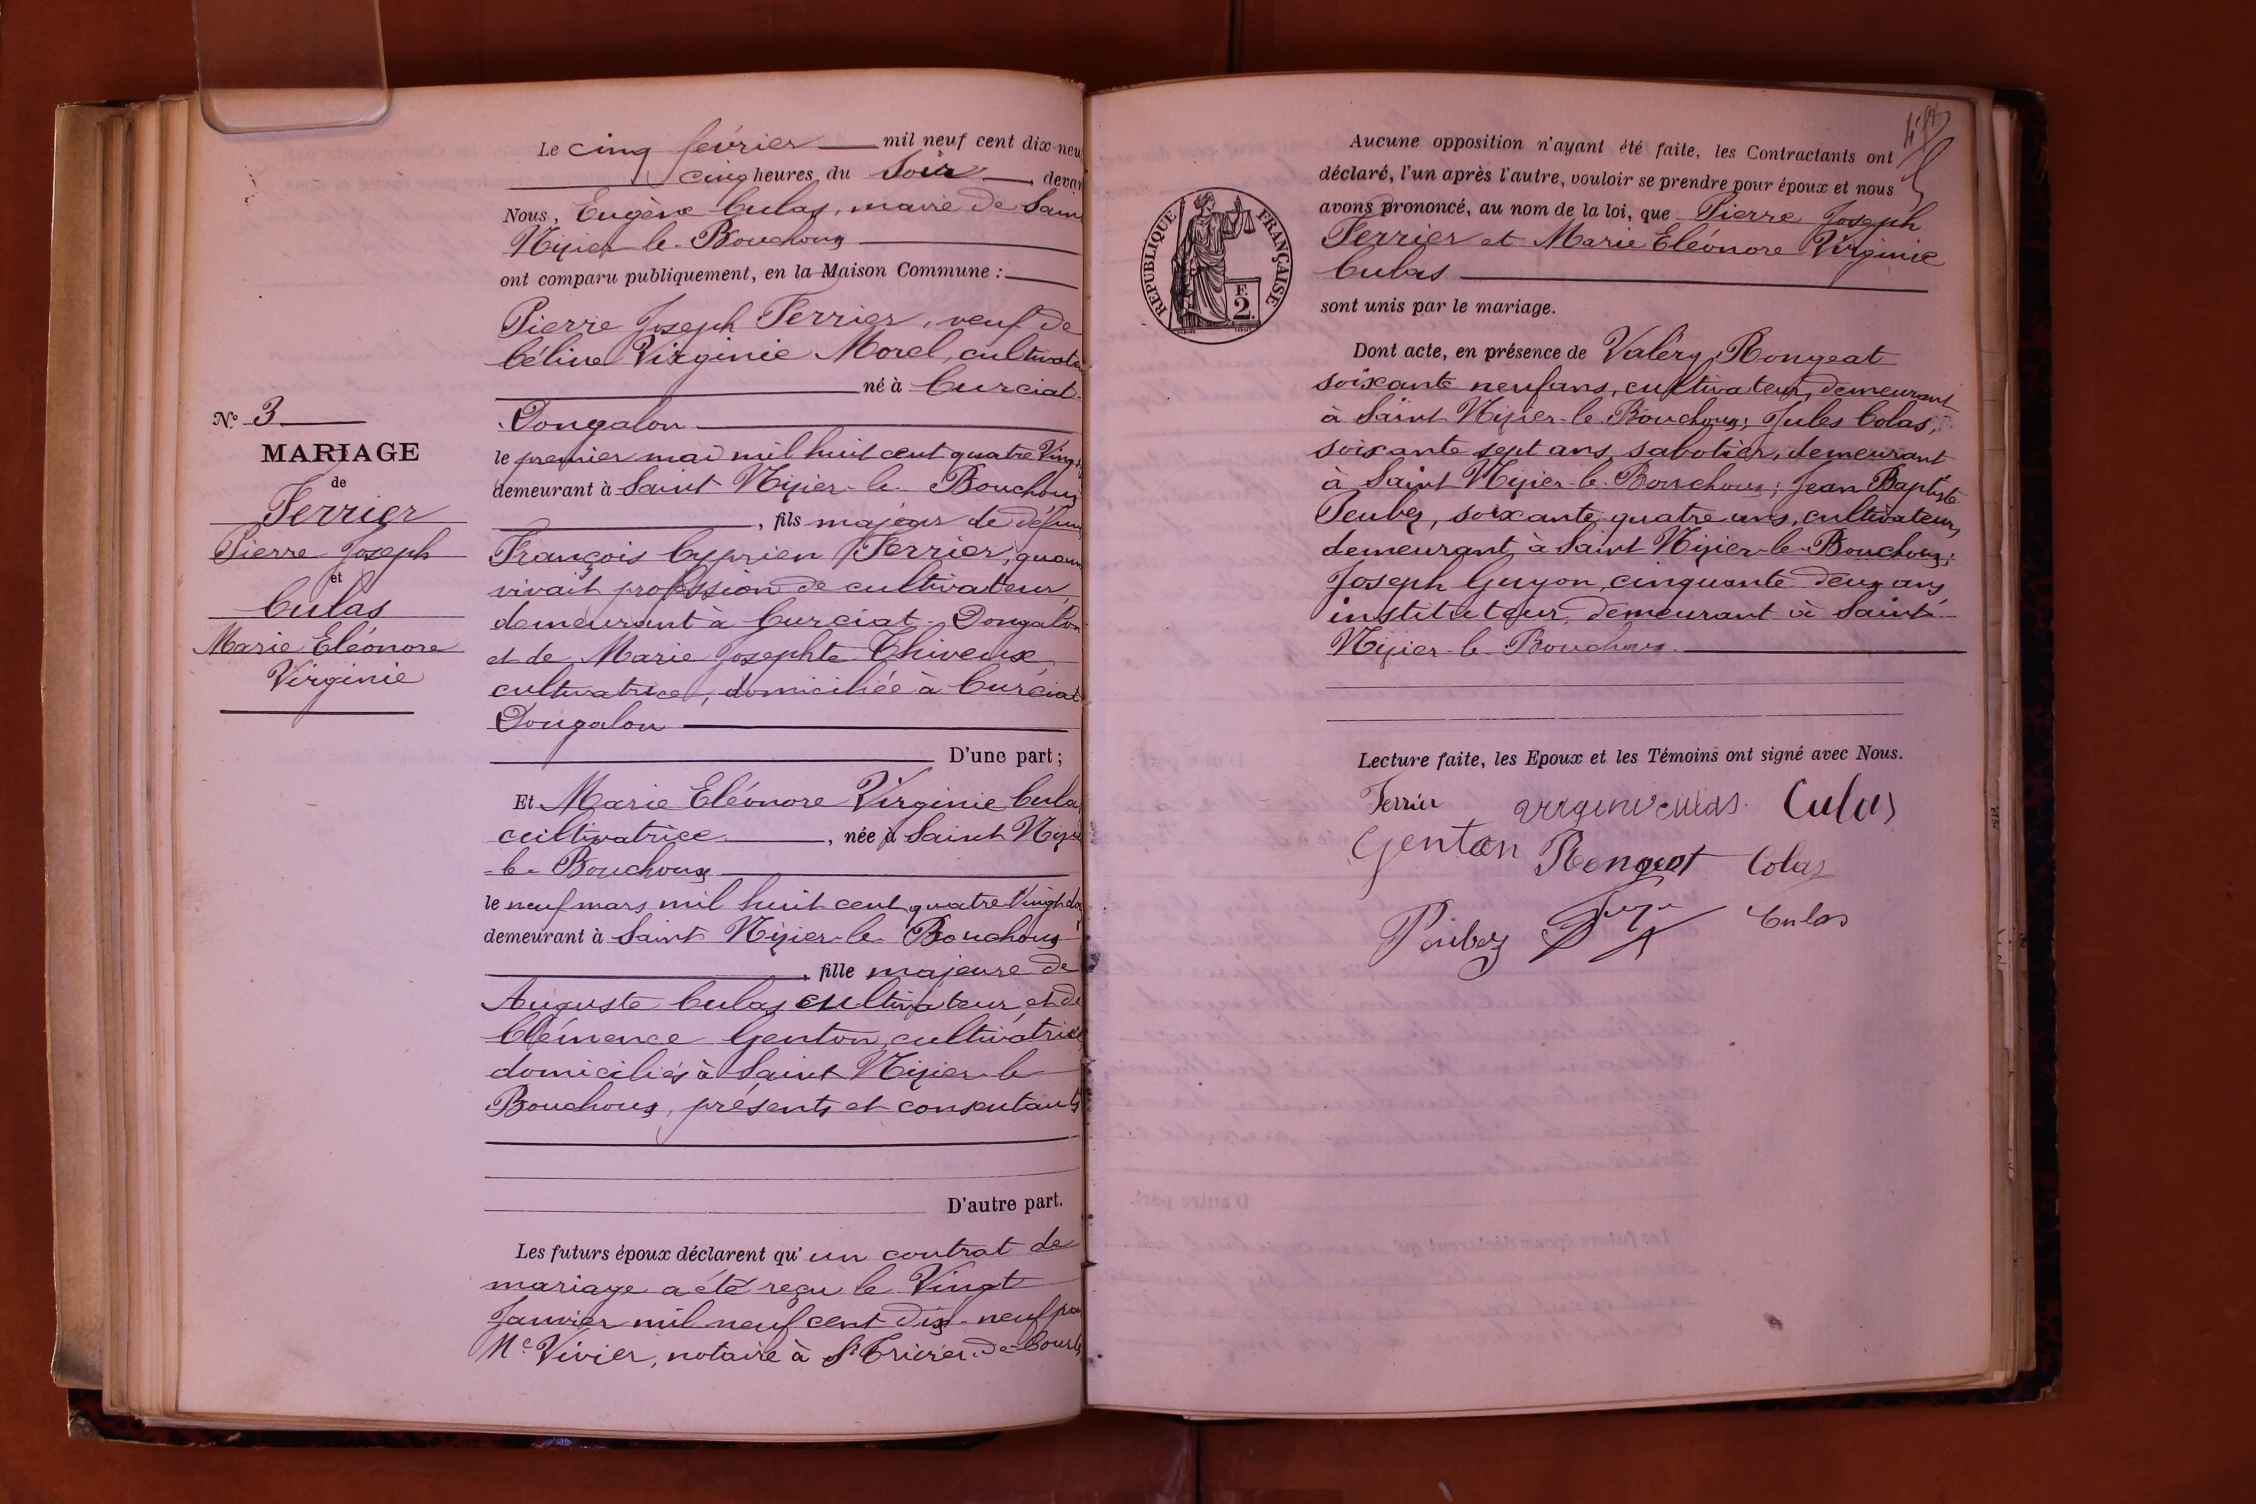 Le cinq février mil neuf cent dix-neu
cinq heures du Soir, devan
Nous, Eugène Culas, maire de Sain
Nizier-le-Bouchoux
ont comparu publiquement, en la Maison Commune :
Pierre Joseph Ferrier, veuf de
Céline Virginie Morel, cultivate
né à Curciat-
Dongalon
le premier mai mil huit cent quatre Vingt
demeurant à Saint Nizier-le-Bouchoux
, fils majeur de défun
François Cyprien Ferrier, quan
vivait profession de cultivateur,
demeurant à Curciat-Dongalon
et de Marie Josephte Thiveux
cultivatrice, domiciliée à Curciat
Dongalon
D'une part ;
Et Marie Eléonore Virginie Cula
cultivatrice, née à Saint Nizie
-le-Bouchoux
le neuf mars mil huit cent quatre Vingt
demeurant à Saint Nizier-le-Bouchoux
, fille majeure de
Auguste Culas cultivateur et de
Clémence Genton, cultivatrice
domiciliés à Saint Nizier-le
Bouchoux, présents et consentants
D'autre part.
Les futurs époux déclarent qu' un contrat de
mariage a été reçu le Vingt
Janvier mil neuf cent dix-neuf par
Me Vivier, notaire à St Trivier-de-Courtes
No 3
MARIAGE
de
Ferrier
Pierre Joseph
et
Culas
Marie Eléonore
Virginie
Aucune opposition n'ayant été faite, les Contractants ont
déclaré, l'un après l'autre, vouloir se prendre pour époux et nous
avons prononcé, au nom de la loi, que Pierre Joseph
Ferrier et Marie Eléonore Virginie
Culas
sont unis par le mariage.
RÉPUBLIQUE FRANÇAISE
F.
2.
Dont acte, en présence de Valéry Rongeat
soixante neuf ans, cultivateur, demeurant
à Saint Nizier-le-Bouchoux; Jules Colas,
soixante sept ans, sabotier, demeurant
à Saint Nizier-le-Bouchoux; Jean Baptiste
Peubey, soixante quatre ans, cultivateur,
demeurant à Saint Nizier-le-Bouchoux;
Joseph Guyon, cinquante deux ans,
instituteur, demeurant à Saint-
Nizier-le-Bouchoux.
Lecture faite, les Epoux et les Témoins ont signé avec Nous.
Ferrier virginie culas Culas
Genton Rongeat Colas
Culas